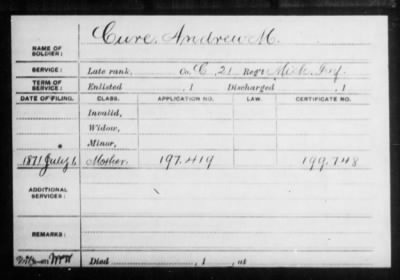 NAME OF SOLDIER: Cure, Andrew M.
SERVICE: Late rank, Co. C, 21 Reg't Mich Inf.
TERM OF SERVICE: Enlisted , 1 Discharged , 1
DATE OF FILING. CLASS. APPLICATION NO. LAW. CERTIFICATE NO.
Invalid,
Widow,
Minor,
1871 July 1 Mother. 197.419 199.748
ADDITIONAL SERVICES:
REMARKS:
Died , 1 , at